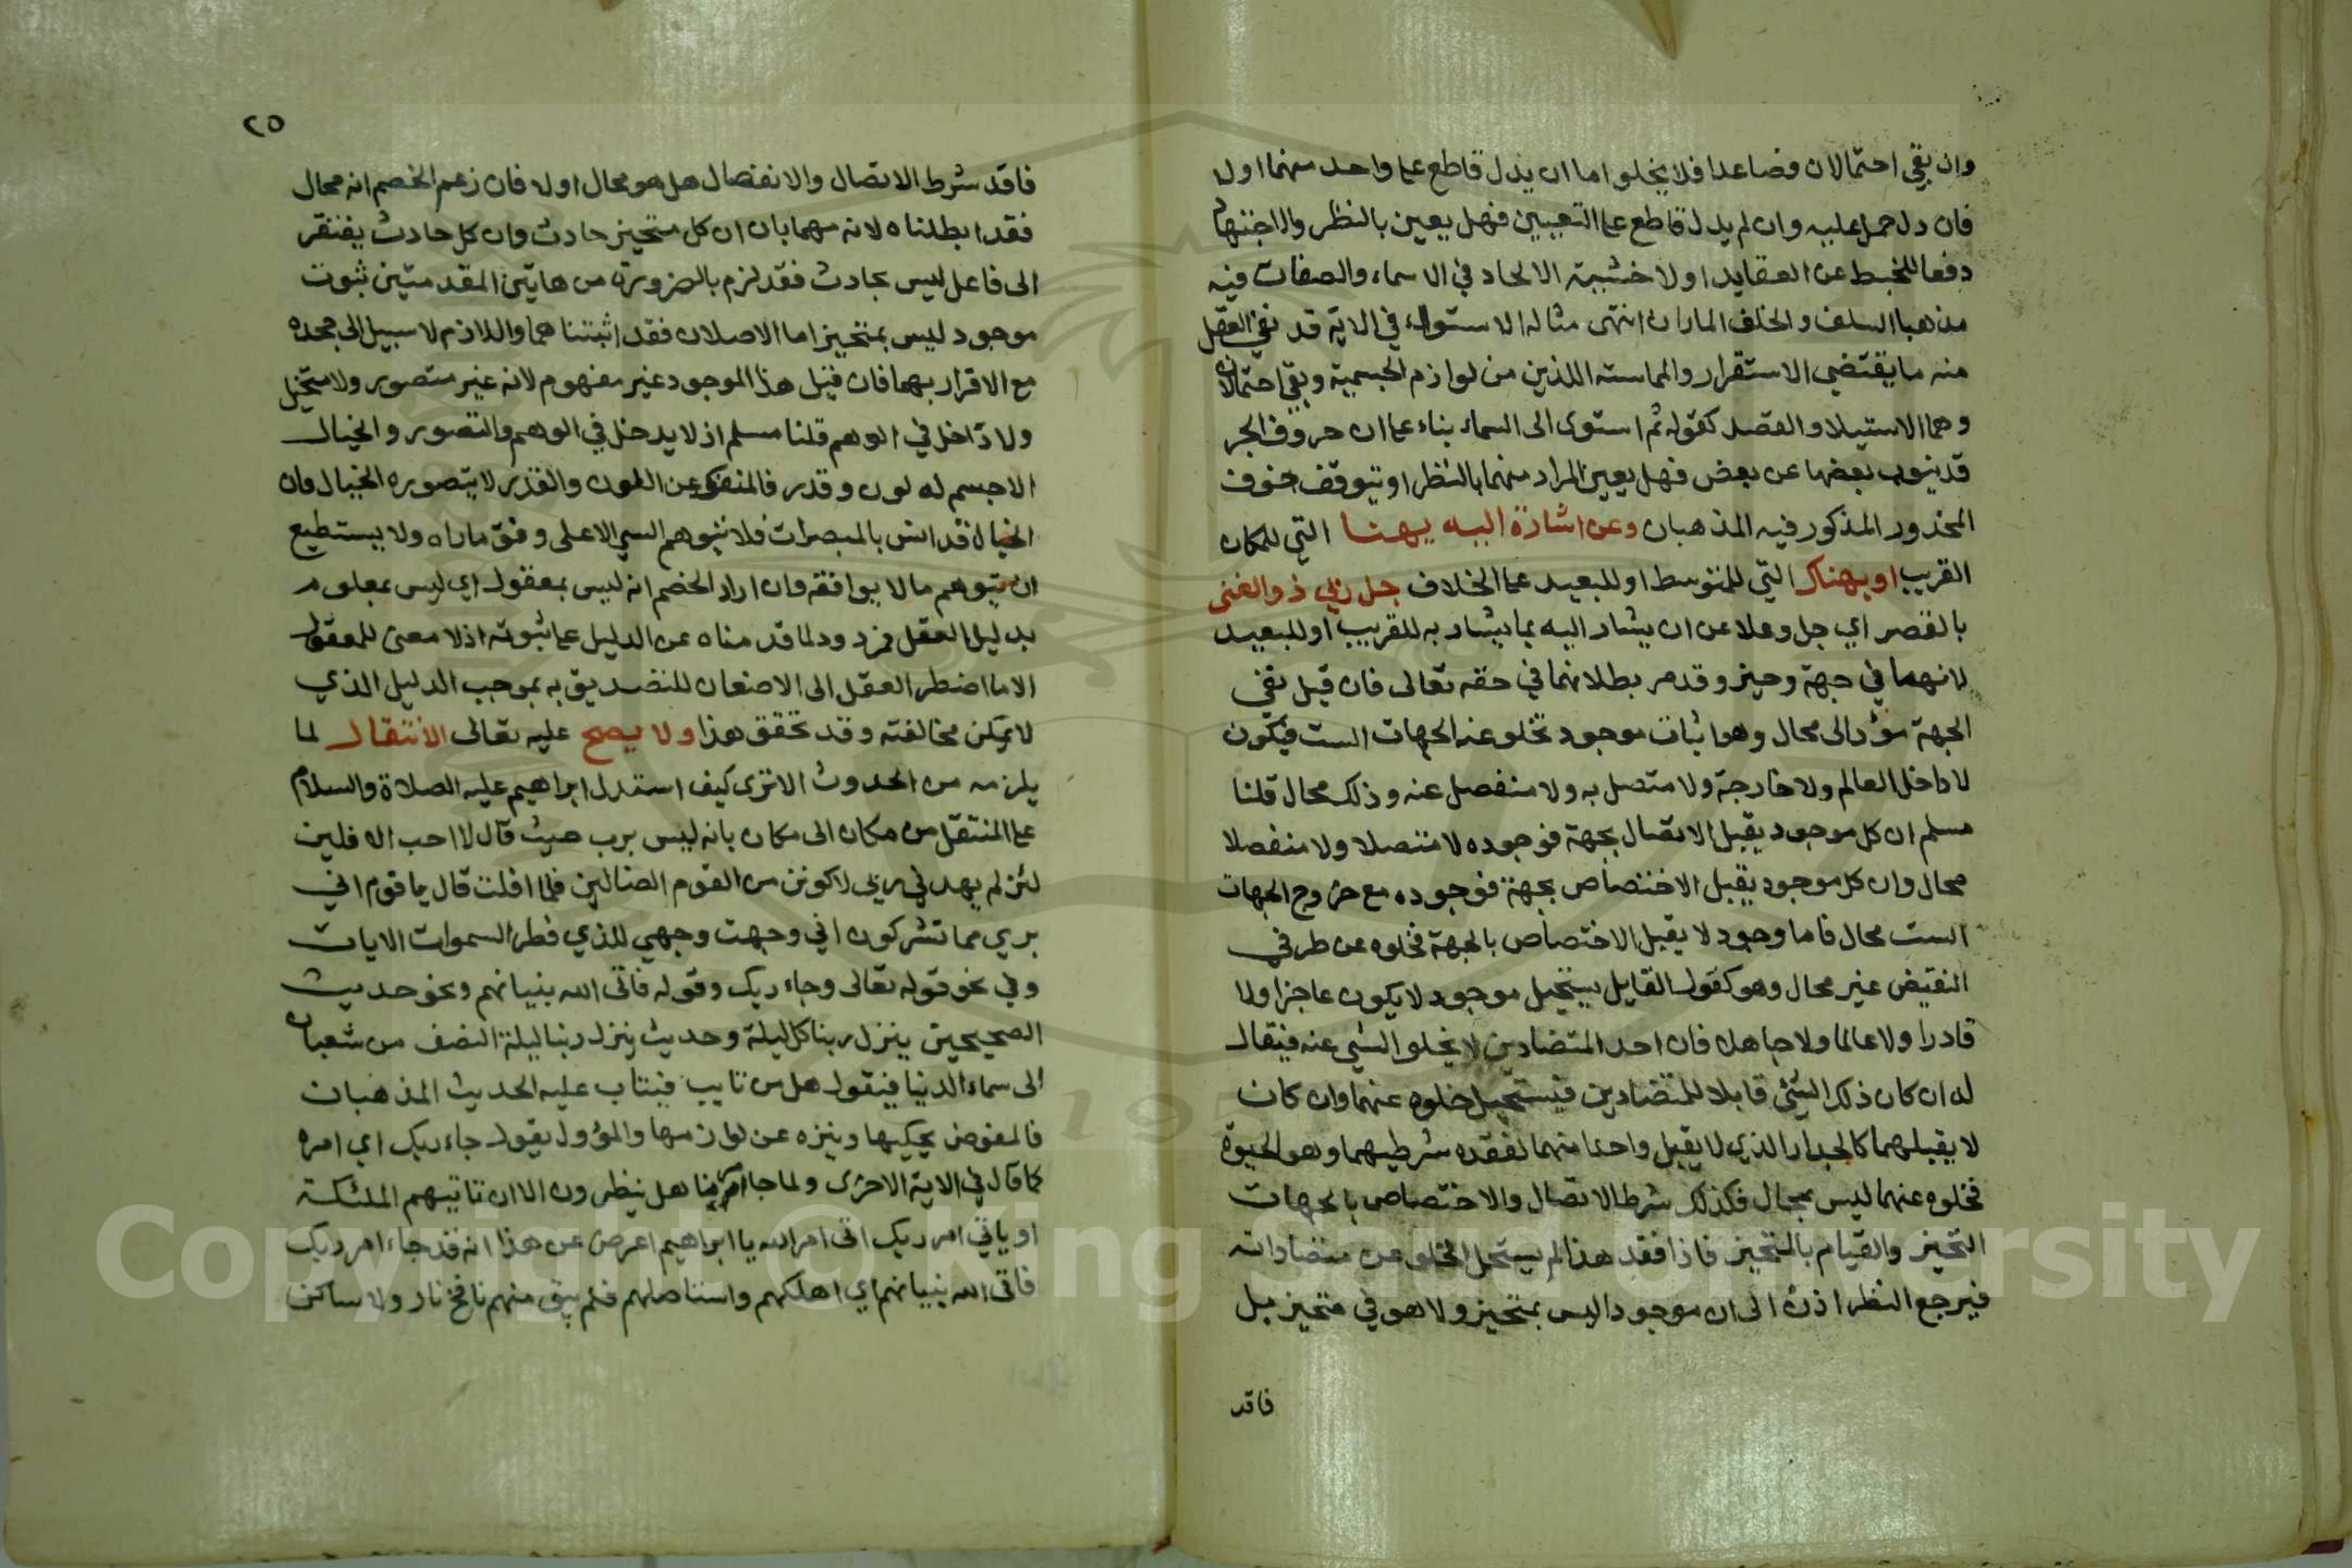 وان بقي احتمالان فصاعدا فلا يخلو اما ان يدل قاطع على واحد منهما اولا
فان دل حمل عليه وان لم يدل قاطع على التعيين فهل يعين بالنظر والاجتهاد
دفعا للخبط عن العقايد اولا خشية الالحاد في الاسماء والصفات فيه
مذهبا السلف والخلف الماران انتهى مثاله الاستواء في الاية قد نفى العقل
منه ما يقتضى الاستقرار والمماسته اللذين من لوازم الجسمية وبقي احتمالان
وهما الاستيلا والقصد كقوله ثم استوى الى السماء بناء على ان حروف الجر
قد ينوب بعضها عن بعض فهل يعين المراد منهما بالنظر او يتوقف خوف
المحذور المذكور فيه المذهبان وعن اشارة اليه بهنا التي للمكان
القريب او بهناك التي للمتوسط او للبعيد على الخلاف جل ربي ذو الغنى
بالقصر اي جل وعلا عن ان يشار اليه بما يشار به للقريب او للبعيد
لانهما في جهة وحيز وقد مر بطلانهما في حقه تعالى فان قيل نفي
الجهة مؤد الى محال وهو اثبات موجود تخلو عنه الجهات الست فيكون
لا داخل العالم ولا خارجة ولا متصل به ولا منفصل عنه وذلك محال قلنا
مسلم ان كل موجود يقبل الاتصال بجهة فوجوده لا متصلا ولا منفصلا
محال وان كل موجود يقبل الاختصاص بجهة فوجوده مع خروج الجهات
الست محال فاما وجود لا يقبل الاختصاص بالجهة فخلوه عن طرفي
النقيض غير محال وهو كقول القايل يستحيل موجود لا يكون عاجزا ولا
قادرا ولا عالما ولا جاهلا فان احد المتضادين لا يخلو الشي عنه فيقال
له ان كان ذلك الشئ قابلا للمتضادين فيستحيل خلوه عنهما وان كان
لا يقبلهما كالجدار الذي لا يقبل واحدا منهما لفقده شرطيهما وهو الحيوة
فخلوه عنهما ليس بمحال فكذلك شرط الاتصال والاختصاص بالجهات
التحيز والقيام بالمتحيز فاذا فقد هذا لم يستحل الخلو عن متضاداته
فيرجع النظر اذن الى ان موجودا ليس بمتحيز ولا هو في متحيز بل
فاقد
٢٥
فاقد شرط الاتصال والانفصال هل هو محال اولا فان زعم الخصم انه محال
فقد ابطلناه لانه مهما بان ان كل متحيز حادث وان كل حادث يفتقر
الى فاعل ليس بحادث فقد لزم بالضرورة من هاتين المقدمتين ثبوت
موجود ليس بمتحيز اما الاصلان فقد اثبتناهما واللازم لا سبيل الى جحده
مع الاقرار بهما فان قيل هذا الموجود غير مفهوم لانه غير متصور ولا متخيل
ولا داخل في الوهم قلنا مسلم اذ لا يدخل في الوهم والتصور والخيال
الا جسم له لون وقدر فالمنفك عن اللون والقدر لا يتصوره الخيال فان
الخيال قد انس بالمبصرات فلا يتوهم الشي الا على وفق ماراه ولا يستطيع
ان يتوهم ما لا يوافقه وان اراد الخصم انه ليس بمعقول اي ليس بمعلوم
بدليل العقل فمردود لما قدمناه من الدليل على ثبوته اذ لا معنى للمعقول
الا ما اضطر العقل الى الاذعان للتصديق به بموجب الدليل الذي
لا يمكن مخالفته وقد تحقق هذا ولا يصح عليه تعالى الانتقال لما
يلزمه من الحدوث الا ترى كيف استدل ابراهيم عليه الصلاة والسلام
على المنتقل من مكان الى مكان بانه ليس برب حيث قال لا احب الافلين
لئن لم يهدني ربي لاكونن من القوم الضالين فلما افلت قال يا قوم اني
بري مما تشركون اني وجهت وجهي للذي فطر السموات الايات
وفي نحو قوله تعالى وجاء ربك وقوله فاتى الله بنيانهم ونحو حديث
الصحيحين ينزل ربنا كل ليلة وحديث ينزل ربنا ليلة النصف من شعبان
الى سماء الدنيا فيقول هل من تايب فيتاب عليه الحديث المذهبان
فالمفوض يحكيها وينزه عن لوازمها والمؤول يقول جاء ربك اي امره
كما قال في الاية الاخرى ولما جا امرنا هل ينظرون الا ان تاتيهم الملئكة
او ياتي امر ربك اتى امر الله يا ابراهيم اعرض عن هذا انه قد جاء امر ربك
فاتى الله بنيانهم اي اهلكهم واستاصلهم فلم يبق منهم نافخ نار ولا ساكن
Copyright © King Saud University